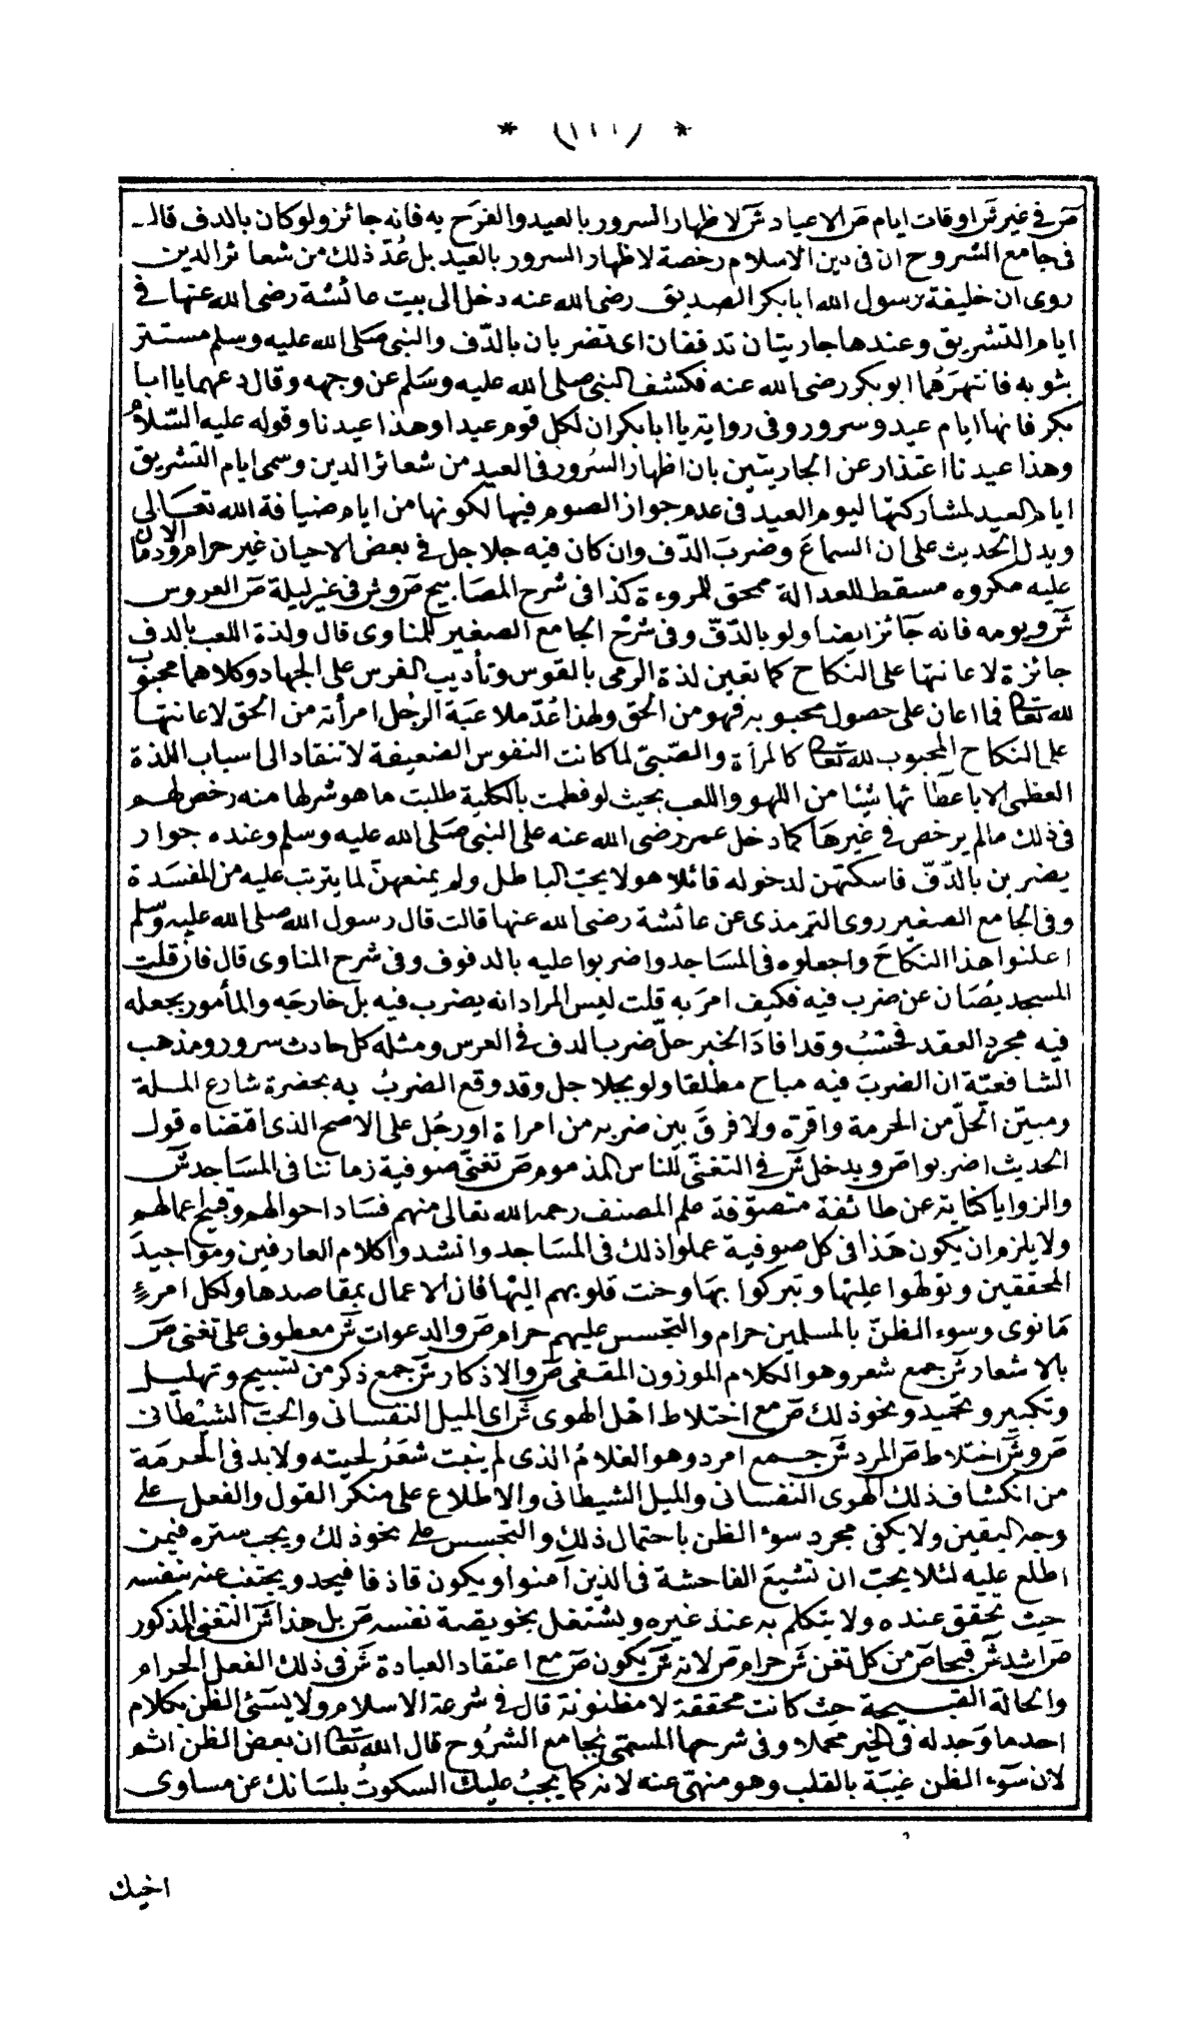 * (١١١) *
ص في غير ش اوقات ايام ص الاعياد ش لاظهار السرور بالعيد والفرح به فانه جائز ولو كان بالدف قال
في جامع الشروح ان في دين الاسلام رخصة لاظهار السرور بالعيد بل عُدّ ذلك من شعائر الدين
روى ان خليفة رسول الله ابا بكر الصديق رضى الله عنه دخل الى بيت عائشة رضى الله عنها في
ايام التشريق وعندها جاريتان تدففان اى تضربان بالدّف والنبى صلى الله عليه وسلم مستتر
بثوبه فانتهرهما ابو بكر رضى الله عنه فكشف النبى صلى الله عليه وسلم عن وجهه وقال دعهما يا ابا
بكر فانها ايام عيد وسرور وفى رواية يا ابا بكر ان لكل قوم عيدا وهذا عيدنا وقوله عليه السّلام
وهذا عيدنا اعتذار عن الجاريتين بان اظهار السُرور فى العيد من شعائر الدين وسمى ايام التشريق
ايام العيد لمشاركتها ليوم العيد فى عدم جواز الصوم فيها لكونها من ايام ضيافة الله تعالى
ويدل الحديث على ان السماعَ وضربَ الدّف وان كان فيه جلاجل فى بعض الاحيان غير حرام ودمان الا
عليه مكروه مسقط للعدالة ممحق للمروءة كذا فى شرح المصابيح ص و ش فى غير ليلة ص العروس
ش ويومه فانه جَائز ايضا ولو بالدّفّ وفى شرْح الجامع الصغير للمناوى قال ولذة اللعب بالدف
جائزة لاعانتها على النكاح كما تعين لذة الرمى بالقوس وتأديب الفرس على الجهاد وكلاهما محبوب
لله تعالى فما اعان على حصول محبوبه فهو من الحق ولهذا عُدّ ملاعبَة الرجُل امرأته من الحق لاعانتها
على النكاح المحبوب لله تعالى كالمرأة والصّبىّ لما كانت النفوس الضعيفة لا تنقاد الى اسباب اللذة
العظمى الا باعطائها شيئا من اللهو واللعب بحيث لو فطمت بالكلية طلبت ما هو شر لها منه رخص لهم
فى ذلك مالم يرخص فى غيرها كما دخل عمر رضى الله عنه على النبى صَلى الله عليه وسلم وعنده جوار
يضربن بالدّفّ فاسكتهن لدخوله قائلا هو لا يحبّ الباطل ولم يمنعهنّ لما يترتب عليه من المفسَدة
وفى الجامع الصغير روى الترمذى عن عائشة رضى الله عنها قالت قال رسول الله صلى الله عليه وسلم
اعلنوا هذا النكاحَ واجعلوه فى المسَاجد واضربوا عليه بالدفوف وفى شرح المناوى قال فان قلت
المسجد يُصَان عن ضرب فيه فكيف امرَ به قلت ليس المراد انه يضرب فيه بل خارجَه والمأمور بجعله
فيه مجرد العقد فحسْبُ وقد افادَ الخبر حلّ ضرب الدف فى العرس ومثله كل حادث سرور ومذهب
الشافعيّة ان الضربَ فيه مباح مطلقا ولو بجلاجل وقد وقع الضربُ به بحضرة شارع الملة
ومبيّن الحلّ من الحرمة واقرّه ولا فرقَ بين ضربه من امراة او رجُل على الاصح الذى اقتضاه قول
الحديث اضربوا ص ويدخل ش فى التغنىّ للناس المذموم ص تغنىّ صوفية زماننا فى المسَاجد ش
والزوايا كناية عن طائفة متصوّفة علم المصنف رحمه الله تعالى منهم فسَاد احوالهم وقبيح اعمالهم
ولا يلزم ان يكون هَذا فى كل صوفية عملوا ذلك فى المسَاجد وانشدوا كلام العارفين ومواجيدَ
المحققين وتولهوا عليها وتبركوا بهَا وحنت قلوبهم اليْها فان الاعمال بمقاصدها ولكل امرئ
مَا نوى وسوء الظنّ بالمسلمين حرام والتجسس عليهم حرام ص والدعوات ش معطوف على تغنى ص
بالاشعار ش جمع شعر وهو الكلام الموزون المقفى ص والاذكار ش جمع ذكر من تسبيح وتهليل
وتكبير وتحميد ونحو ذلك ص مع اختلاط اهْل الهوى ش اى الميل النفسانى والحبّ الشيْطانى
ص و ش اختلاط ص المرد ش جمع امرد وهو الغلامُ الذى لم ينبت شعَرُ لحيته ولا بد فى الحرمَة
من انكشاف ذلك الهوى النفسانى والميل الشيطانى والاطلاع على منكر القول والفعل على
وجه اليقين ولا يكفى مجرد سوء الظن باحتمال ذلك والتجسس على نحو ذلك ويجب ستره فيمن
اطلع عليه لئلا يحبّ ان تشيعَ الفاحشة فى الذين آمنوا ويكون قاذفا فيحد ويجتنب عنه بنفسه
حيث تحقق عنده ولا يتكلم به عند غيره ويشتغل بخويصة نفسه ص بل هذا ش التغنى المذكور
ص اشد ش قبحا ص من كل تغن ش حرام ص لانه ش يكون ص مع اعتقاد العبادة ش فى ذلك الفعل الحرام
والحالة القبيحة حيث كانت محققة لا مظنونة قال فى شرعة الاسلام ولا يسَئُ الظن بكلام
احد ما وَجد له فى الخير محملا وفى شرحها المسمّى بجامع الشرُوح قال الله تعالى ان بعض الظن اثم
لان سَوء الظن غيبَة بالقلب وهو منهىّ عنه لانه كما يجبُ عليك السكوتُ بلسَانك عن مساوى
اخيك